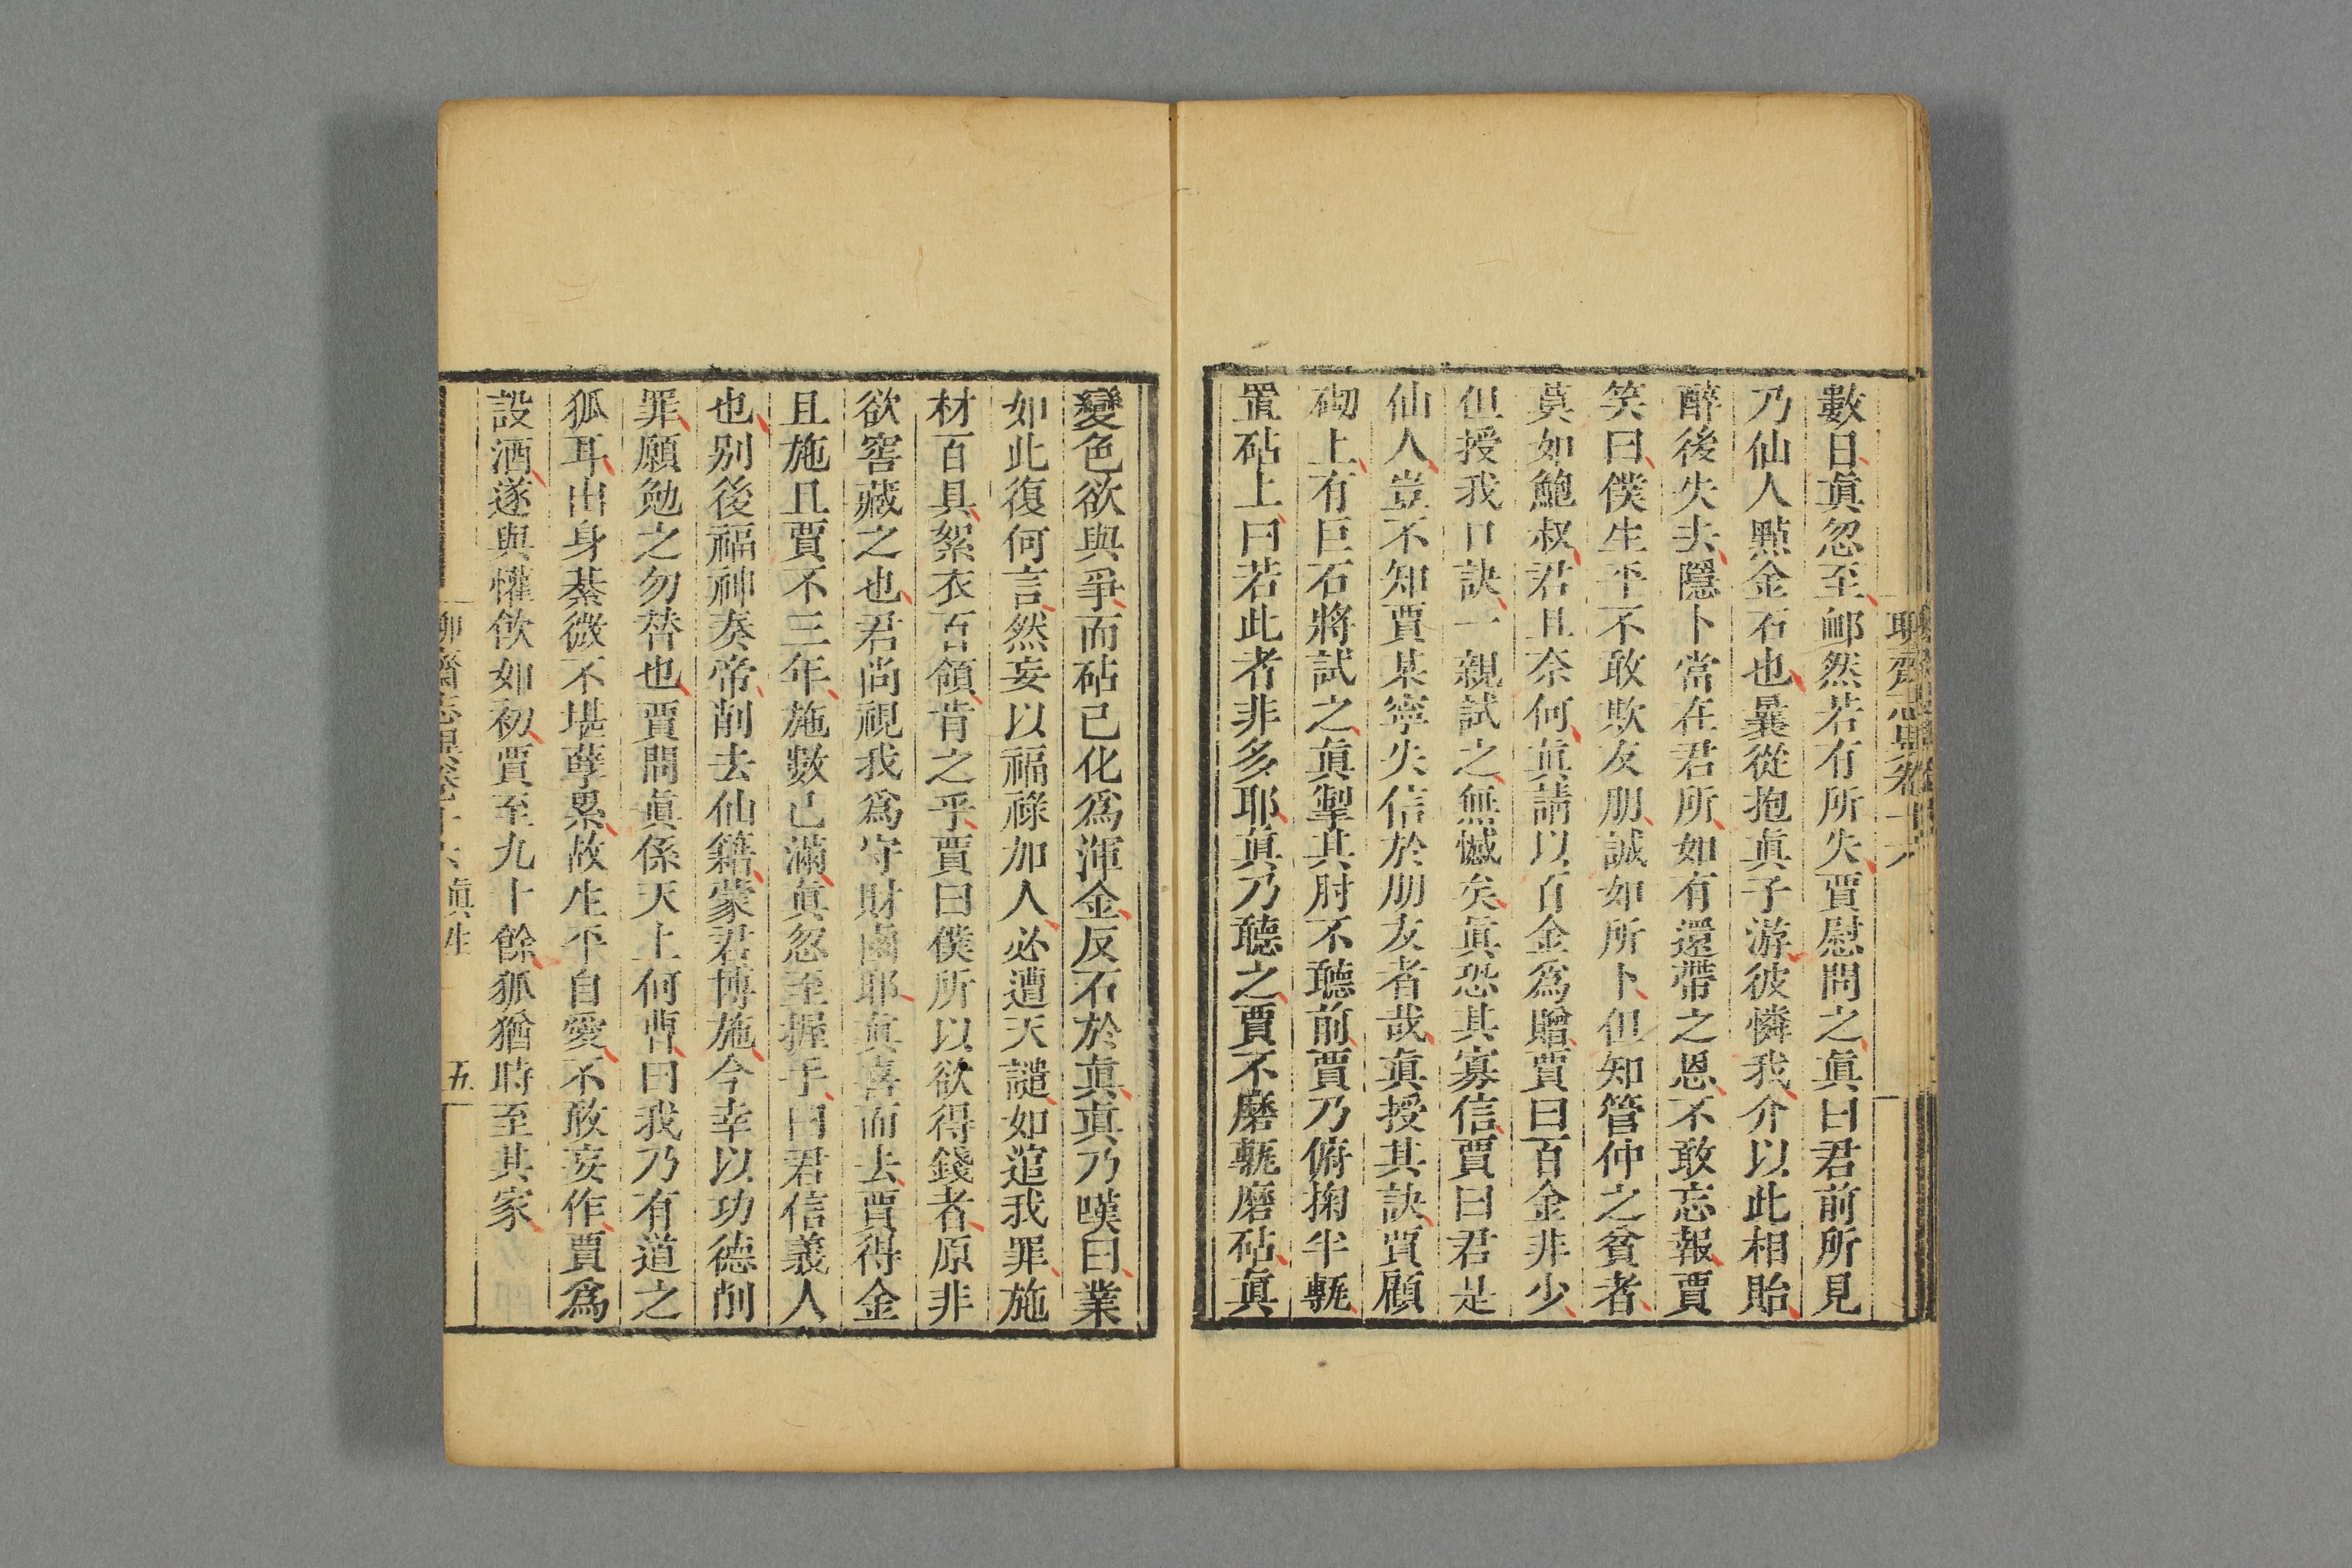 數日眞忽至邮然若有所失賈慰問之眞曰君前所見
乃仙人點金石也曩從抱眞子游彼憐我介以此相貽
醉後失去隱卜當在君所如有還帶之恩不敢忘報賈
笑曰僕生平不敢欺友朋誠如所卜但知管仲之貧者
莫如鮑叔君且奈何眞請以百金爲贈賈曰百金非少
但授我口訣一親試之無憾矣眞恐其寡信賈曰君是
仙人豈不知賈某寧失信於朋友者哉眞授其訣賈顧
砌上有巨石將試之眞掣其肘不聽前賈乃俯掬半甎
置砧上曰若此者非多耶眞乃聽之賈不磨甎磨砧眞
變色欲與爭而砧已化爲渾金反石於眞眞乃嘆曰業
如此復何言然妄以福祿加人必遭天譴如逭我罪施
材百具絮衣百領肯之乎賈曰僕所以欲得錢者原非
欲窖藏之也君尚視我爲守財鹵耶眞喜而去賈得金
且施且賈不三年施數已滿眞忽至握手曰君信義人
也别後福神奏帝削去仙籍蒙君博施今幸以功德削
罪願勉之勿替也賈問眞係天上何曹曰我乃有道之
狐耳出身綦微不堪孽累故生平自愛不敢妄作賈爲
設酒遂與懽飲如初賈至九十餘狐猶時至其家
聊齋志異卷十六 眞生 五